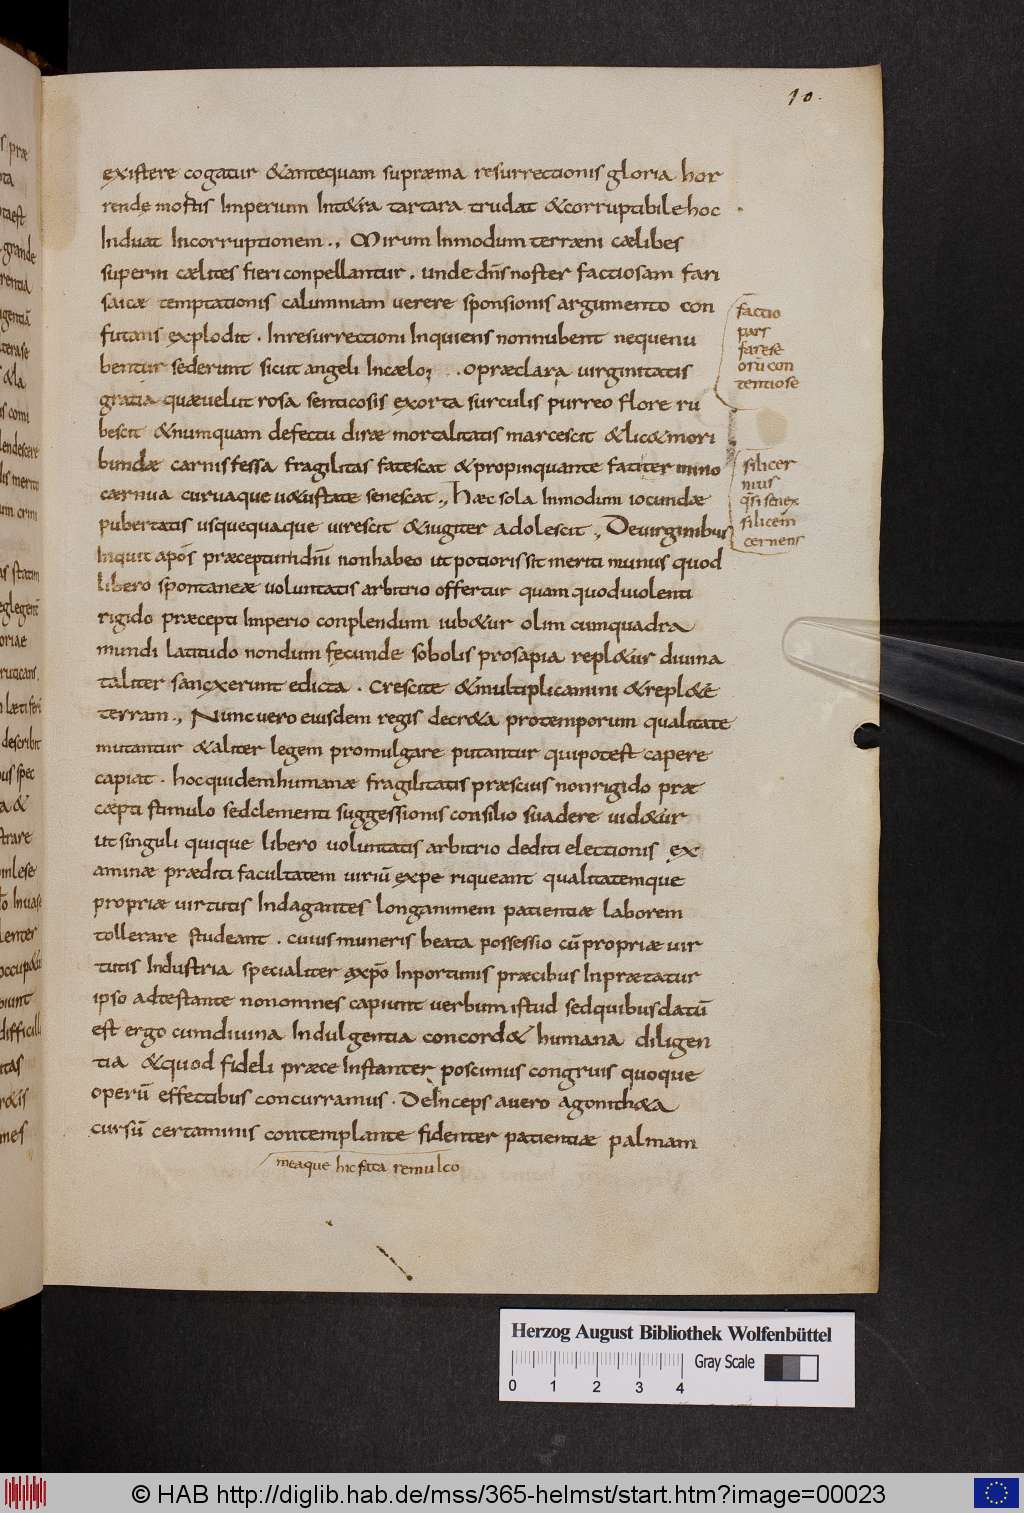 10.
existere cogatur &antequam supræma resurrectionis gloria hor
rendę mortis Imperium Int&ra tartara trudat &corruptibile hoc
Induat Incorruptionem., Mirum Inmodum terræni cælibes
superni cælites fieri conpellantur. unde dns noster factiosam fari
saicæ temptationis calumniam verere sponsionis argumento con
futans explodit. Inresurrectioni Inquiens nonnubent nequenu
bentur sederunt sicut angeli Incælo; . . opræclara virginitatis
gratia quæuelut rosa senticosis exorta surculis purreo flore ru
bescit &numquam defectu diræ mortalitatis marcescit &lic&mori
bundæ carnis fessa fragilitas fatescat &propinquante faciter mino
cærnua curuaque u&ustate senescat., Hæc sola Inmodum iocundæ
pubertatis usquequaque uirescit &iugiter adolescit., Deuirginibus
Inquit apos præceptumdni nonhabeo ut potioris sit meriti munus quod
libero spontaneæ uoluntatis arbitrio offertur quam quoduiolenti
rigido præcepti Imperio conplendum iub&ur olim cumquadra
mundi latitudo nondum fęcunde sobolis prosapia repl&ur diuina
taliter sancxerunt edicta. Crescite &multiplicamini &repl&e
terram., Nunc uero eiusdem regis decr&a protemporum qualitate
mutantur &aliter legem promulgare putantur quipotest capere
capiat. hoc quidemhumanæ fragilitatis præscius nonrigido præ
cæpti stimulo sedclementi suggessionis consilio suadere uid&ur
ut singuli quique libero uoluntatis arbitrio dediti electionis ex
aminæ præditi facultatem uiriū expe riqueant qualitatemque
propriæ uirtutis Indagantes longanimem patientiæ laborem
tollerare studeant. cuius muneris beata possessio cū propriæ uir
tutis Industria specialiter axpo Inportunis præcibus Inprætatur
ipso adtestante nonomnes capiunt uerbum istud sedquibusdatū
est ergo cumdiuina Indulgentia concord& humana diligen
tia &quod fideli præce Instanter poscimus congruis quoque
operū effectibus concurramus. DeInceps auero agonith&a
cursū certaminis contemplante fidenter patientiæ palmam
meaque hic fata remulco
factio
pars
farese
orū con
tentiose
silicer
nius
qsi senex
silicem
cernens
Herzog August Bibliothek Wolfenbüttel
Gray Scale
0 1 2 3 4
© HAB http://diglib.hab.de/mss/365-helmst/start.htm?image=00023